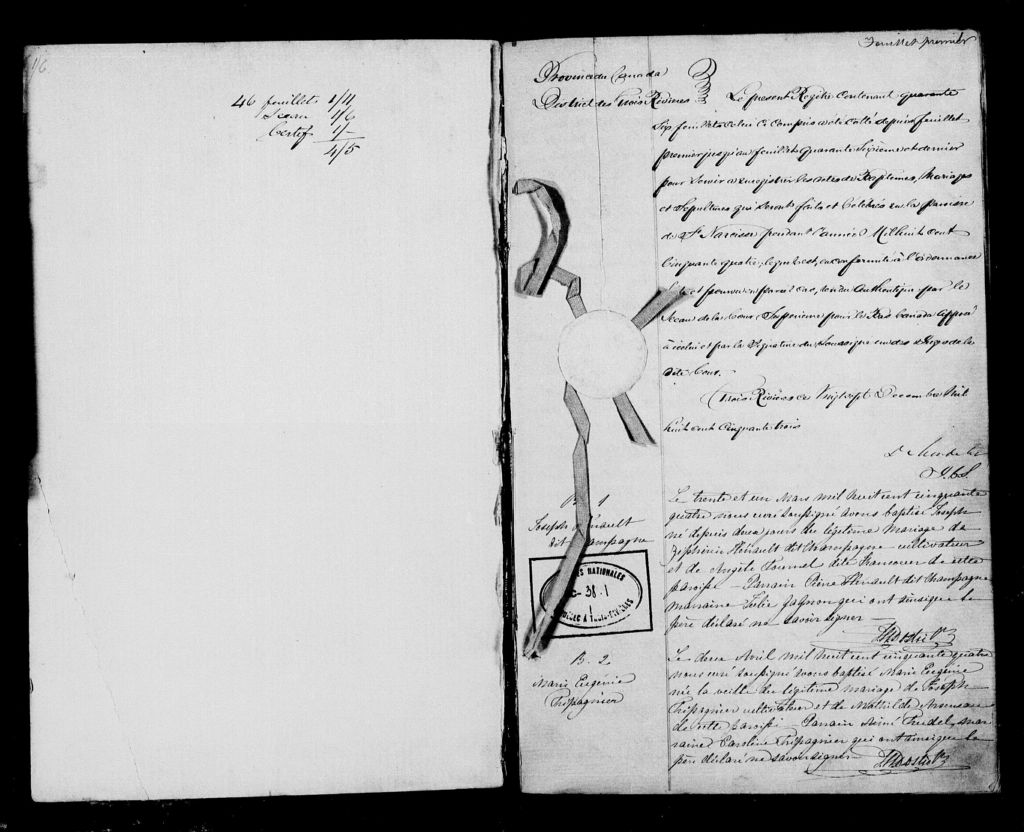 46 feuillets 1/11
Sceau 1/6
Certif 1/-
4/5
Feuillet premier
Province du Canada
District des Trois Rivières
Le présent Régistre contenant quarante
Six feuillets celui ci compris coté depuis feuillet
premier jusqu'au feuillet quarante Sixième et dernier
pour Servir à enregistrer les actes de Baptêmes, Mariages
et Sépultures qui Seront faits et Célébrés en la paroisse
de St Narcisse pendant l'année Mil huit cent
Cinquante quatre, lequel est, en conformité à l'ordonnance
et pourvu en pareil cas, rendu Authentique par le
Sceau de la Cour Supérieure pour le Bas Canada apposé
à icelui et par la Signature du Soussigné un des Juges de la
dite Cour.
Trois Rivières ce Vingt sept Décembre Mil
huit cent Cinquante trois
B. 1
Joseph Hénault
dit Champagne
Le trente et un Mars mil huit cent cinquante
quatre nous curé soussigné avons baptisé Joseph
né depuis deux jours du légitime mariage de
Zéphirin Hénault dit Champagne cultivateur
et de Angèle dite Francoeur de cette
paroisse - Parrain Pierre Hénault dit Champagne
marraine Julie Gagnon qui ont ainsi que le
père déclaré ne savoir signer
ES NATIONALES
38-1
1
QUÉBEC A TROIS-RIVIÈRES
B. 2
Marie Eugénie
Trépagnier
Le deux Avril mil huit cent cinquante quatre
nous curé soussigné avons baptisé Marie Eugénie
née la veille du légitime mariage de Joseph
Trépagnier cultivateur et de Mathilde
de cette paroisse - Parrain Aimé Trudel, mar
raine Caroline Trépagnier qui ont ainsi que le
père déclaré ne savoir signer